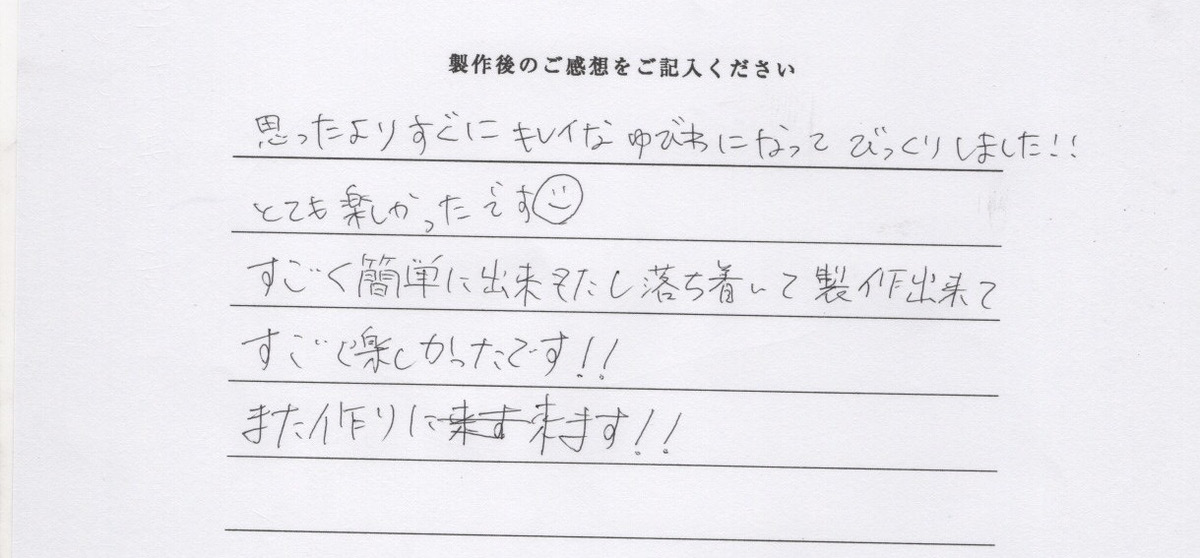 製作後のご感想をご記入ください
思ったよりすぐに キレイな ゆびわになって びっくりしました!!
とても楽しかったです☺
すごく簡単に出来たし落ち着いて製作出来て
すごく楽しかったです!!
また作りに来ます!!